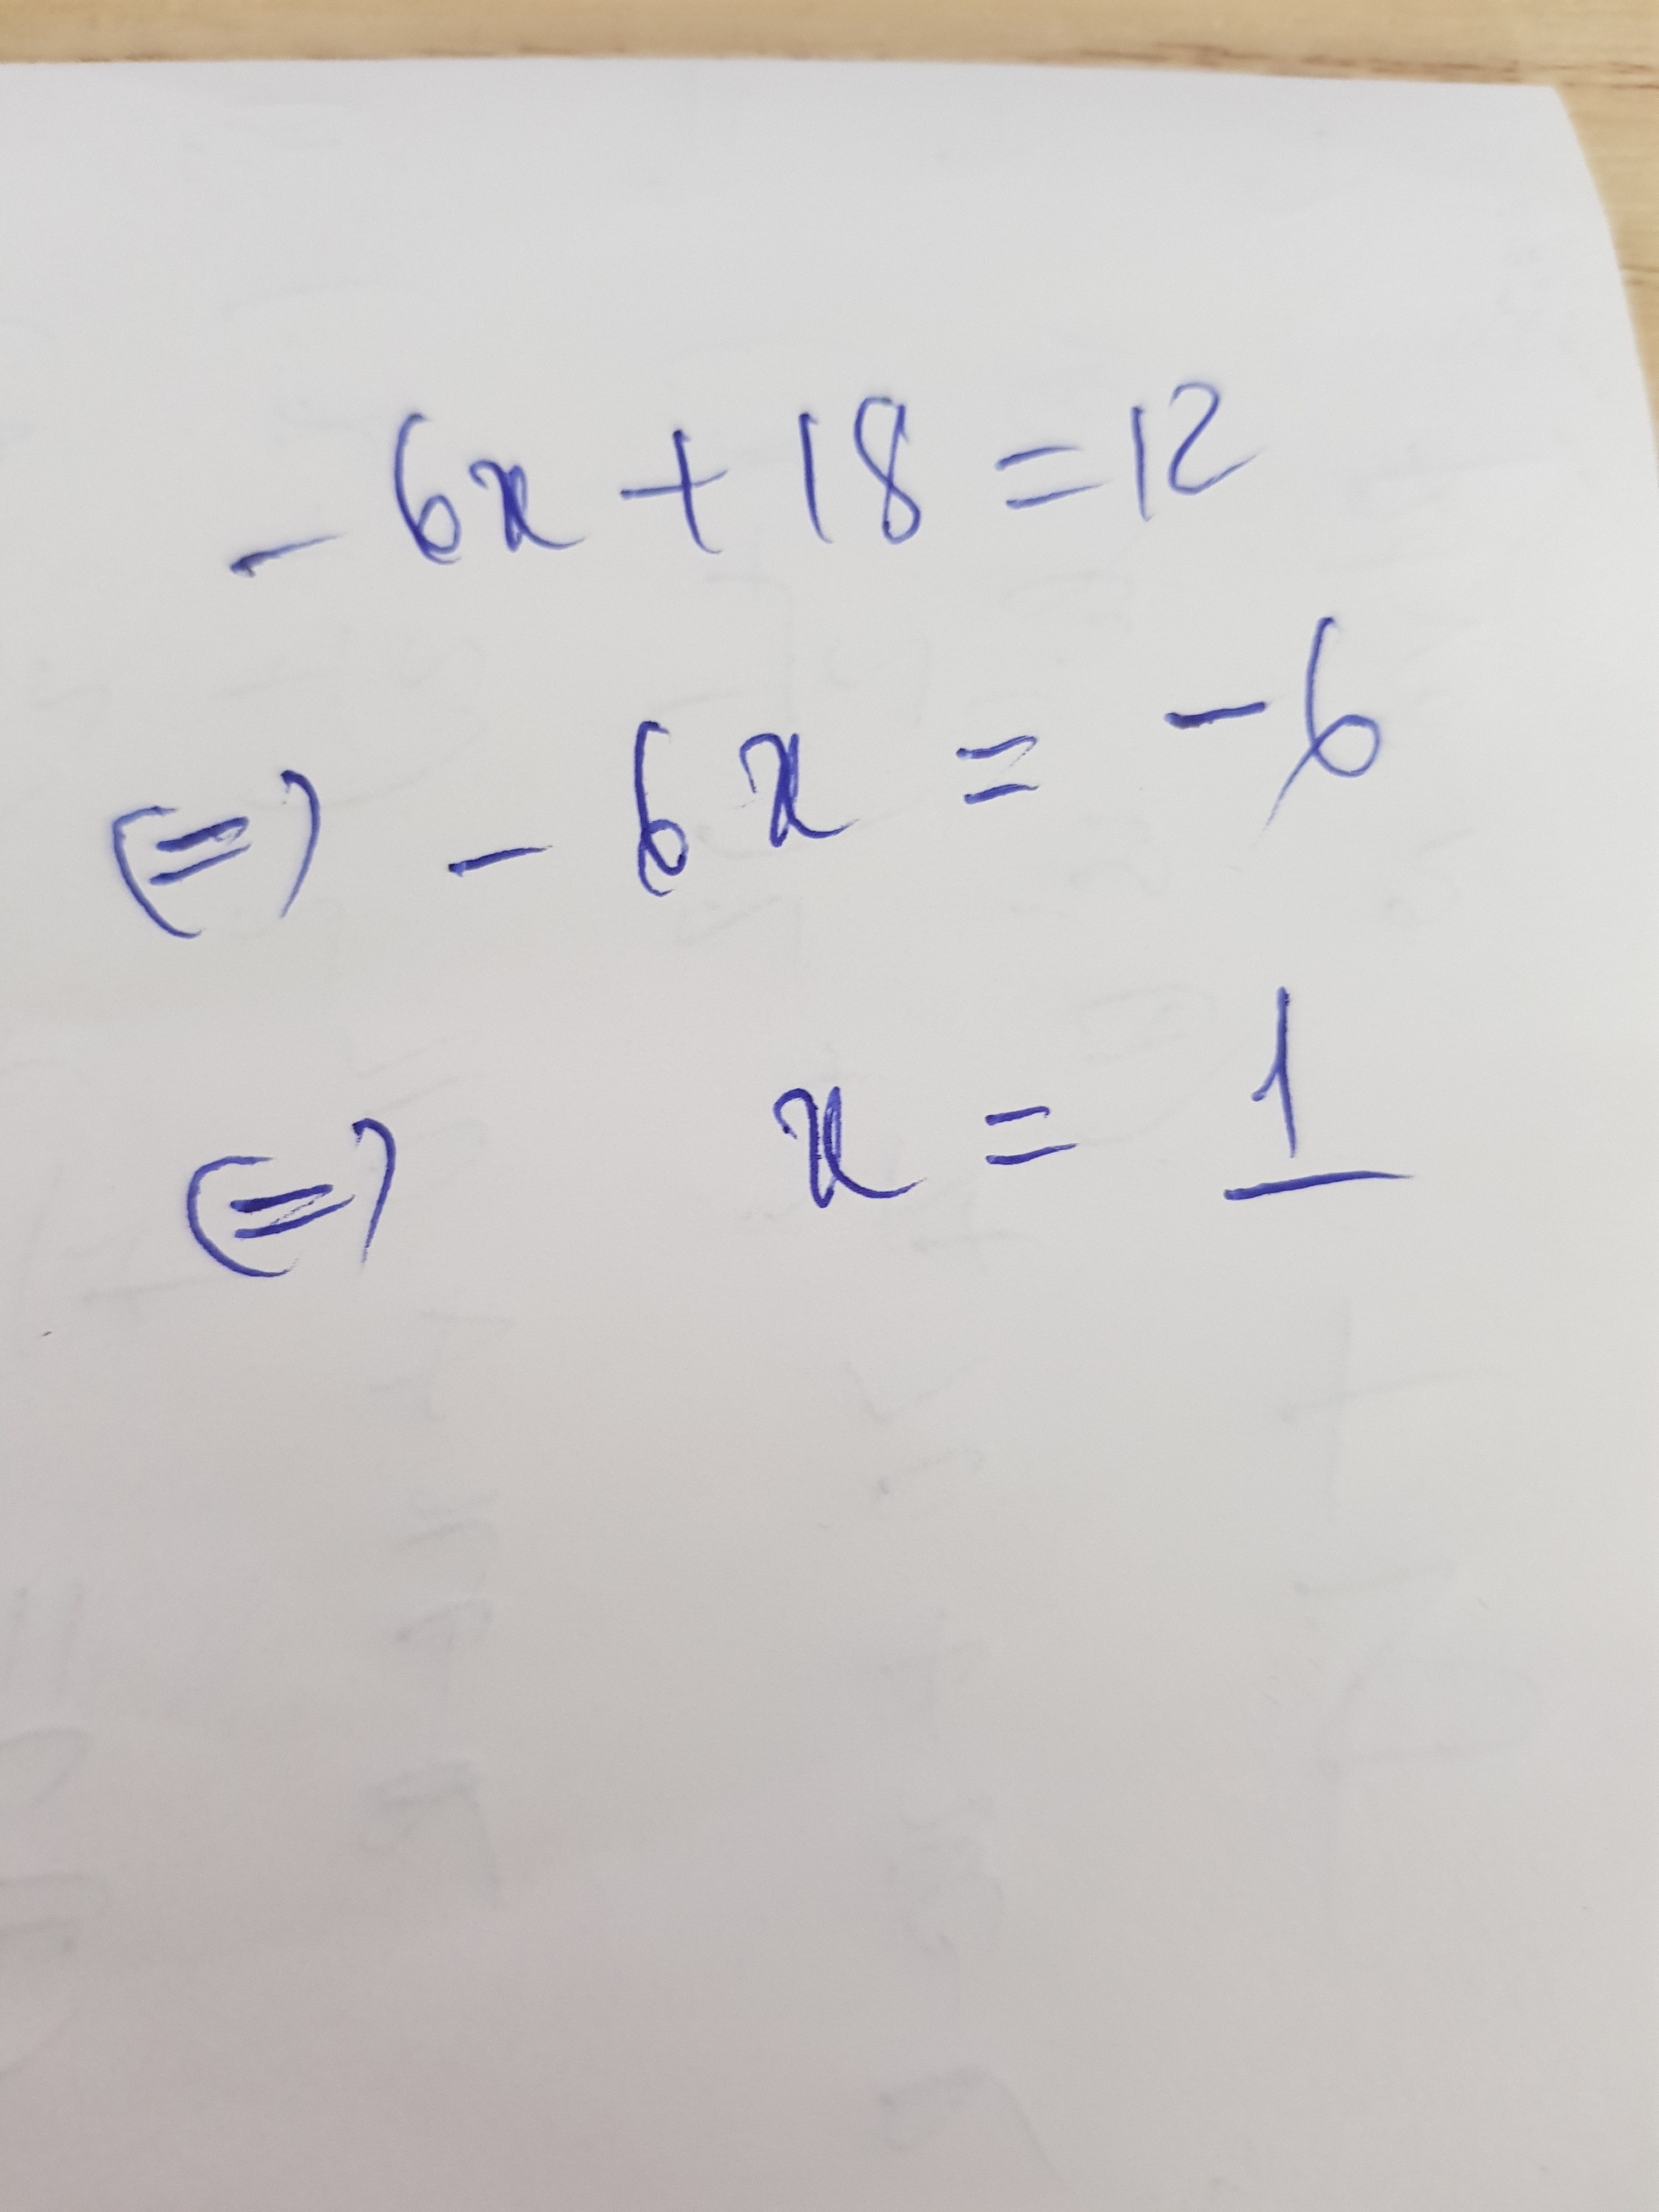 -6x + 18 = 12
⇔ -6x = -6
⇔ x = 1